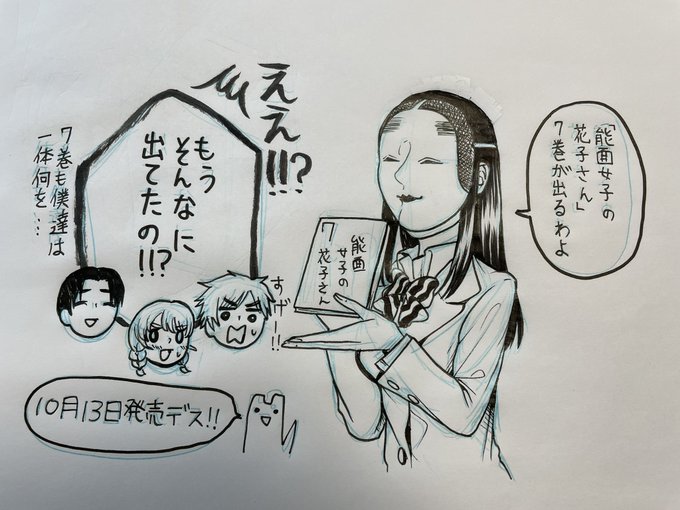 「能面女子の
花子さん」
7巻が出るわよ
能面
女子の
花子さん
7
ええ!!!?
もう
そんなに
出てたの!!?
7巻も僕達は
一体何を…
すげー!!
10月13日発売デス!!